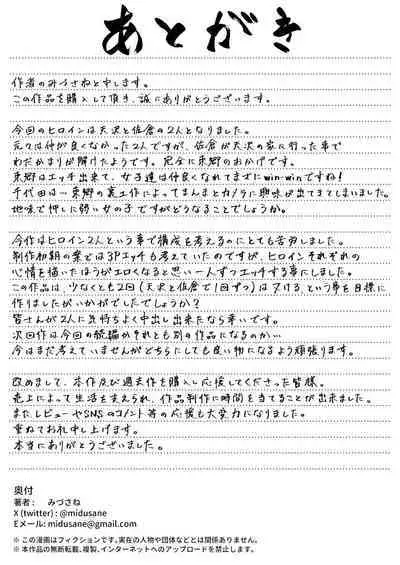 あとがき
作者のみづさねと申します。
この作品を購入して頂き、誠にありがとうございます。
今回のヒロインは天沢と佐倉の2人となりました。
元々は仲が良くなかった2人ですが、佐倉が天沢の家に行った事で
わだかまりが解けたようです。完全に東郷のおかげです。
東郷はエッチ出来て、女子達は仲良くなれてまさにwin-winですね!
千代田は一東郷の裏工作によってまんまとカノラに興味が出てきてしまいました。
地味で押しに弱い女の子ですがどうなることでしょうか。
今作はヒロイン2人という事で構成を考えるのにとても苦労しました。
制作初期の案では3Pエッチも考えていたのですが、ヒロインそれぞれの
心情を描いたほうがエロくなると思い一人ずつエッチする事にしました。
この作品は、少なくとも2回(天沢と佐倉で1回ずつ)はヌける、という事を目標に
作りましたがいかがでしたでしょうか?
皆さんが2人に気持ちよく中出し出来たなら幸いです。
次回作は今回の続編かそれとも別の作品になるのか…
今はまだ考えていませんがどちらにしても良い物になるよう頑張ります。
改めまして、本作及び過去作を購入し応援してくださった皆様。
売上によって生活を支えられ、作品制作に時間を当てることが出来ました。
またレビューやSNSのコメント等の応援も大変力になりました。
重ねてお礼申し上げます。
本当にありがとうございました。
奥付
著者: みづさね
X (twitter) : @midusane
Eメール: midusane@gmail.com
※ この漫画はフィクションです。実在の人物や団体などとは関係ありません。
※ 本作品の無断転載、複製、インターネットへのアップロードを禁止します。